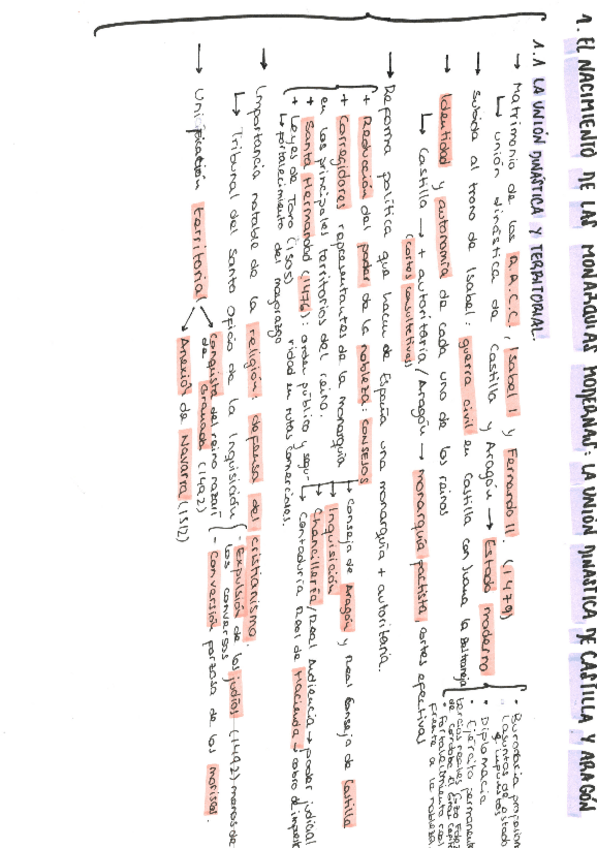 1. EL NACIMIENTO DE LAS MONARQUÍAS MODERNAS: LA UNIÓN DINÁSTICA DE CASTILLA Y ARAGÓN
1.1 LA UNIÓN DINÁSTICA Y TERRITORIAL
→ Matrimonio de los RR.CC., Isabel I y Fernando II. (1479)
↳ unión dinástica de Castilla y Aragón → Estado moderno
- Burocracia
(asuntos de estado
e impuestos
• Diplomacia
• Ejército permanente
tercios reales Glzo Fdez
de Córdoba El Gran
• Fortalecimiento real
frente a la nobleza.
→ Subida al trono de Isabel: guerra civil en Castilla con Juana la Beltraneja
→ Identidad y autonomía de cada uno de los reinos
↳ Castilla → + autoritaria / Aragón → monarquía pactista, cortes efectivas
(cortes consultivas)
→ Reforma política que hacen de España una monarquía + autoritaria.
+ Reducción del poder de la nobleza: CONSEJOS
→ Consejo de Aragón y Real Consejo de Castilla
→ Inquisición
→ Chancillería / Real Audiencia → poder judicial
→ Contaduría Real de Hacienda → cobro de impuestos
+ Corregidores representantes de la monarquía
en los principales territorios del reino.
+ Santa Hermandad (1476): orden público y segu-
ridad en rutas comerciales.
+ Leyes de Toro (1505)
↳ fortalecimiento del mayorazgo
→ Importancia notable de la religión: defensa del cristianismo.
↳ Tribunal del Santo Oficio de la Inquisición
- Expulsión de los judíos (1492) menos de
los conversos
- Conversión forzosa de los moriscos.
→ Unificación territorial
→ Conquista del reino nazarí
de Granada (1492)
→ Anexión de Navarra (1512)